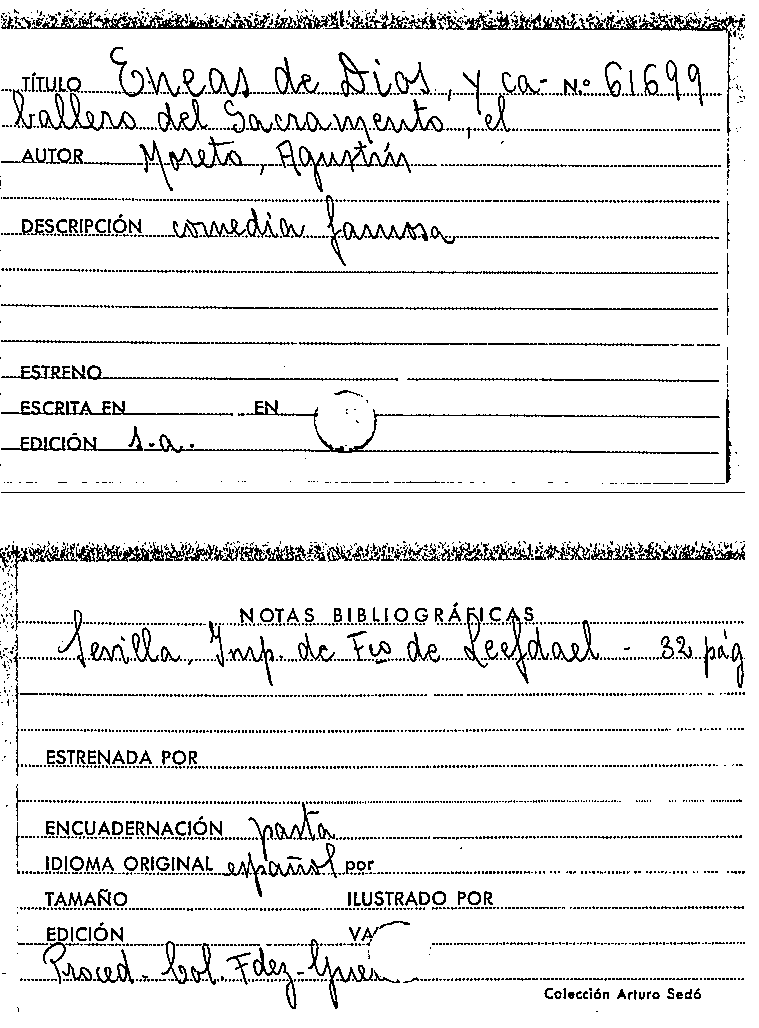 TÍTULO Eneas de Dios, y ca- N.º 61699
ballero del Sacramento, el
AUTOR Moreto, Agustín
DESCRIPCIÓN comedia famosa
ESTRENO
ESCRITA EN EN
EDICIÓN s.a.
NOTAS BIBLIOGRÁFICAS
Sevilla, Imp. de Fco de Leefdael - 32 pág
ESTRENADA POR
ENCUADERNACIÓN pasta
IDIOMA ORIGINAL español por
TAMAÑO ILUSTRADO POR
EDICIÓN VA
Proced. Col. Fdez-Guer
Colección Arturo Sedó